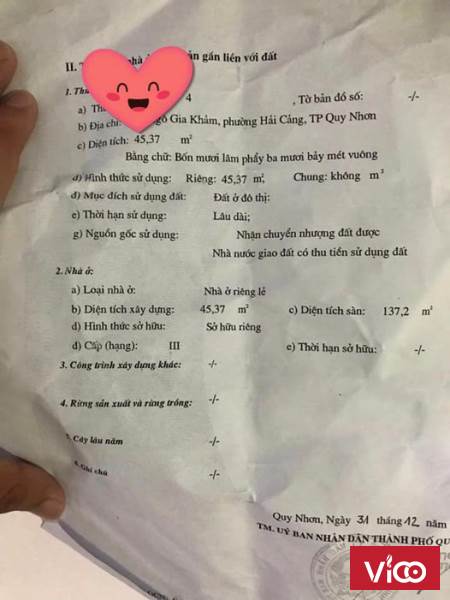 II. T nhà ản gắn liền với đất
1. Thử
a) Th 4 , Tờ bản đồ số: -/-
b) Địa chỉ: gô Gia Khảm, phường Hải Cảng, TP Quy Nhơn
c) Diện tích: 45,37 m²
Bằng chữ: Bốn mươi lăm phẩy ba mươi bảy mét vuông
d) Hình thức sử dụng: Riêng: 45,37 m², Chung: không m³
đ) Mục đích sử dụng đất: Đất ở đô thị:
e) Thời hạn sử dụng: Lâu dài;
g) Nguồn gốc sử dụng: Nhận chuyển nhượng đất được
Nhà nước giao đất có thu tiền sử dụng đất
2. Nhà ở:
a) Loại nhà ở: Nhà ở riêng lẻ
b) Diện tích xây dựng: 45,37 m² c) Diện tích sàn: 137,2 m²
d) Hình thức sở hữu: Sở hữu riêng
đ) Cấp (hạng): III e) Thời hạn sở hữu: -/-
3. Công trình xây dựng khác: -/-
4. Rừng sản xuất và rừng trồng: -/-
5. Cây lâu năm -/-
6. Ghi chú -/-
Quy Nhơn, Ngày 31 tháng 12 năm
TM. UỶ BAN NHÂN DÂN THÀNH PHỐ QU
Vico